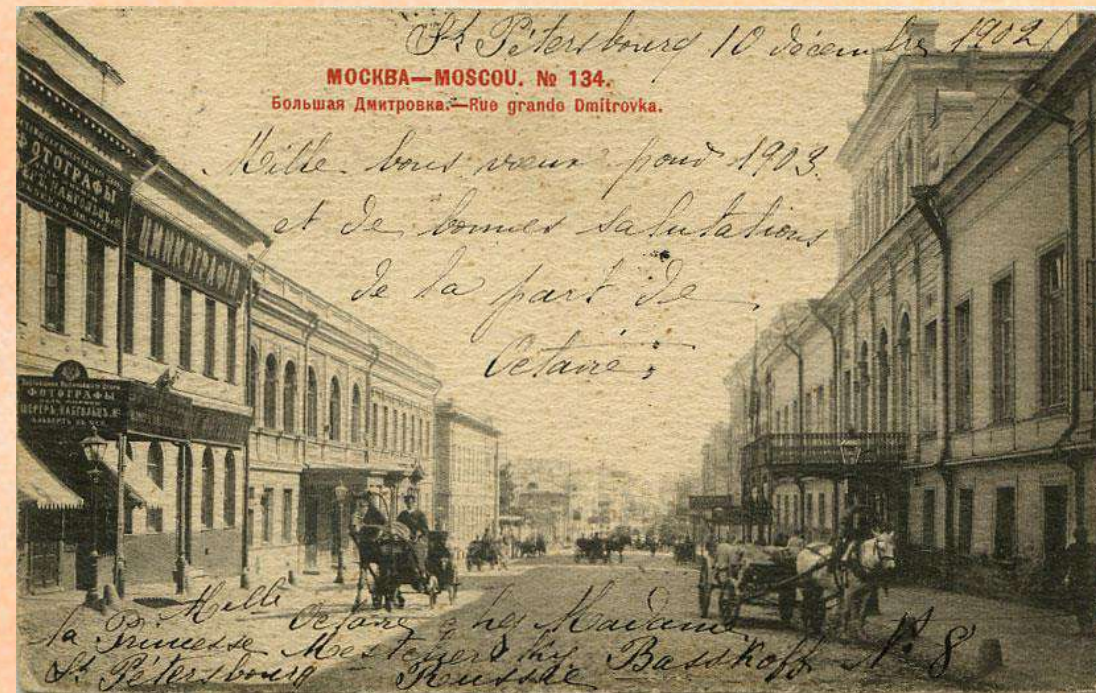 St Pétersbourg 10 décembre 1902
МОСКВА—MOSCOU. № 134.
Большая Дмитровка.—Rue grande Dmitrovka.
Mille bons vœux pour 1903.
et de bonnes salutations
de la part de
Octavie
ФОТОГРАФЫ
ЦИНКОГРАФІЯ
ФОТОГРАФЫ
ШЕРЕРЪ, НАБГОЛЬЦЪ и Кº
Melle Octavie chez Madame
la Princesse Mestchersky Basskoff № 8
St Pétersbourg Russie